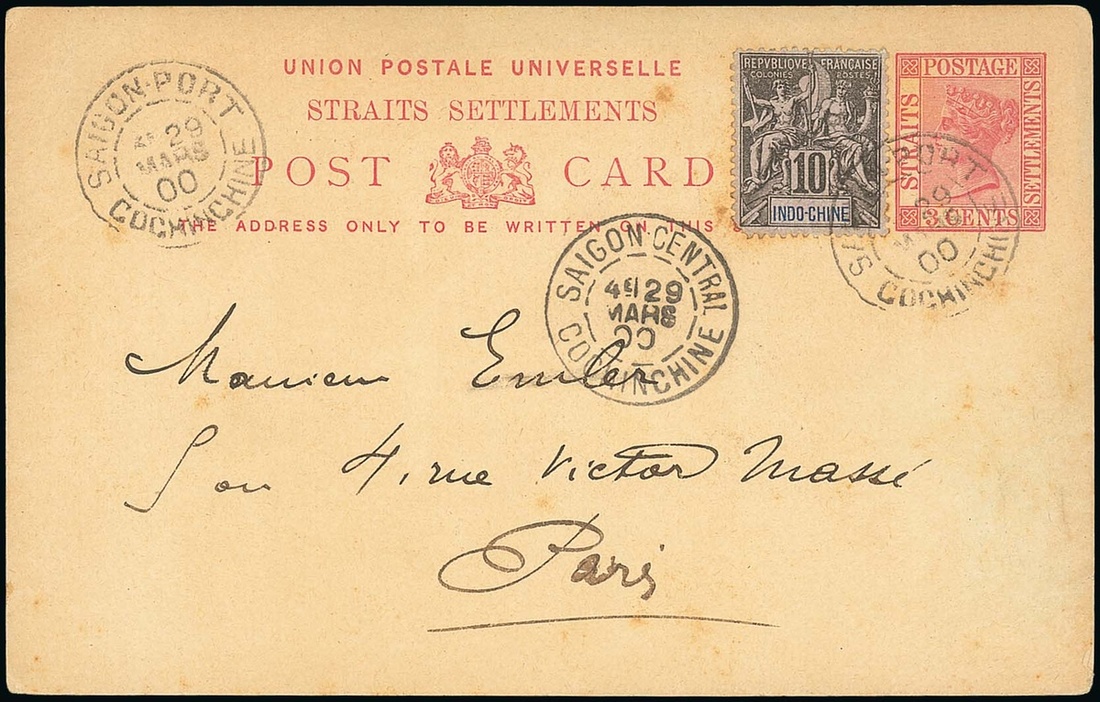 UNION POSTALE UNIVERSELLE
STRAITS SETTLEMENTS
POST CARD
THE ADDRESS ONLY TO BE WRITTEN ON THIS
REPVBLIQVE FRANÇAISE
COLONIES POSTES
10
INDO-CHINE
POSTAGE
STRAITS
SETTLEMENTS
3 CENTS
SAIGON-PORT
29
MARS
00
COCHINCHINE
SAIGON CENTRAL
4E 29
MARS
00
COCHINCHINE
PORT
29
00
COCHINCHINE
Monsieur
4, rue Victor Massé
Paris